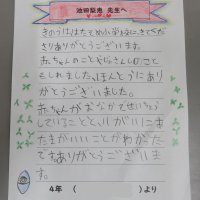 池田梨恵 先生へ
きのうははたての小学校にきてくだ
さりありがとうございます。
赤ちゃんのことやじょさんしのこと
もしれました。ほんとうにあり
がとうございました。
赤ちゃんがおなかでせいちょう
していることと、
たまがいいことがわか
てす ありがとうございいま
す。
4年（　　　）より